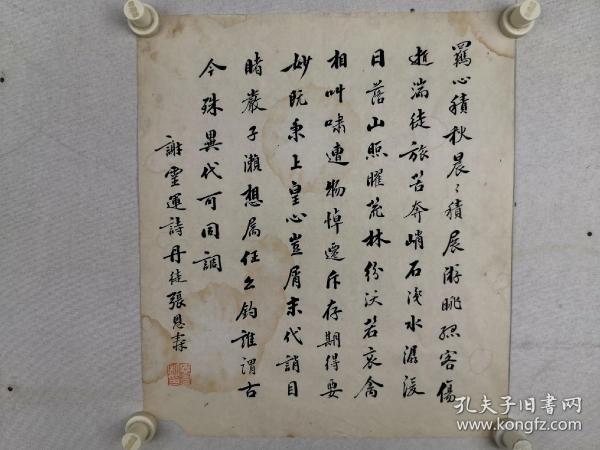 羈心積秋晨〻積展游眺孤客傷
逝湍徒旅苦奔峭石淺水潺湲
日落山照曜荒林紛沃若哀禽
相叫嘯遭物悼遷斥存期得要
妙既秉上皇心豈屑末代誚目
睹嚴子瀨想屬任公釣誰謂古
今殊異代可同調
謝靈運詩丹徒張恩
孔夫子旧書网
www.kongfz.com